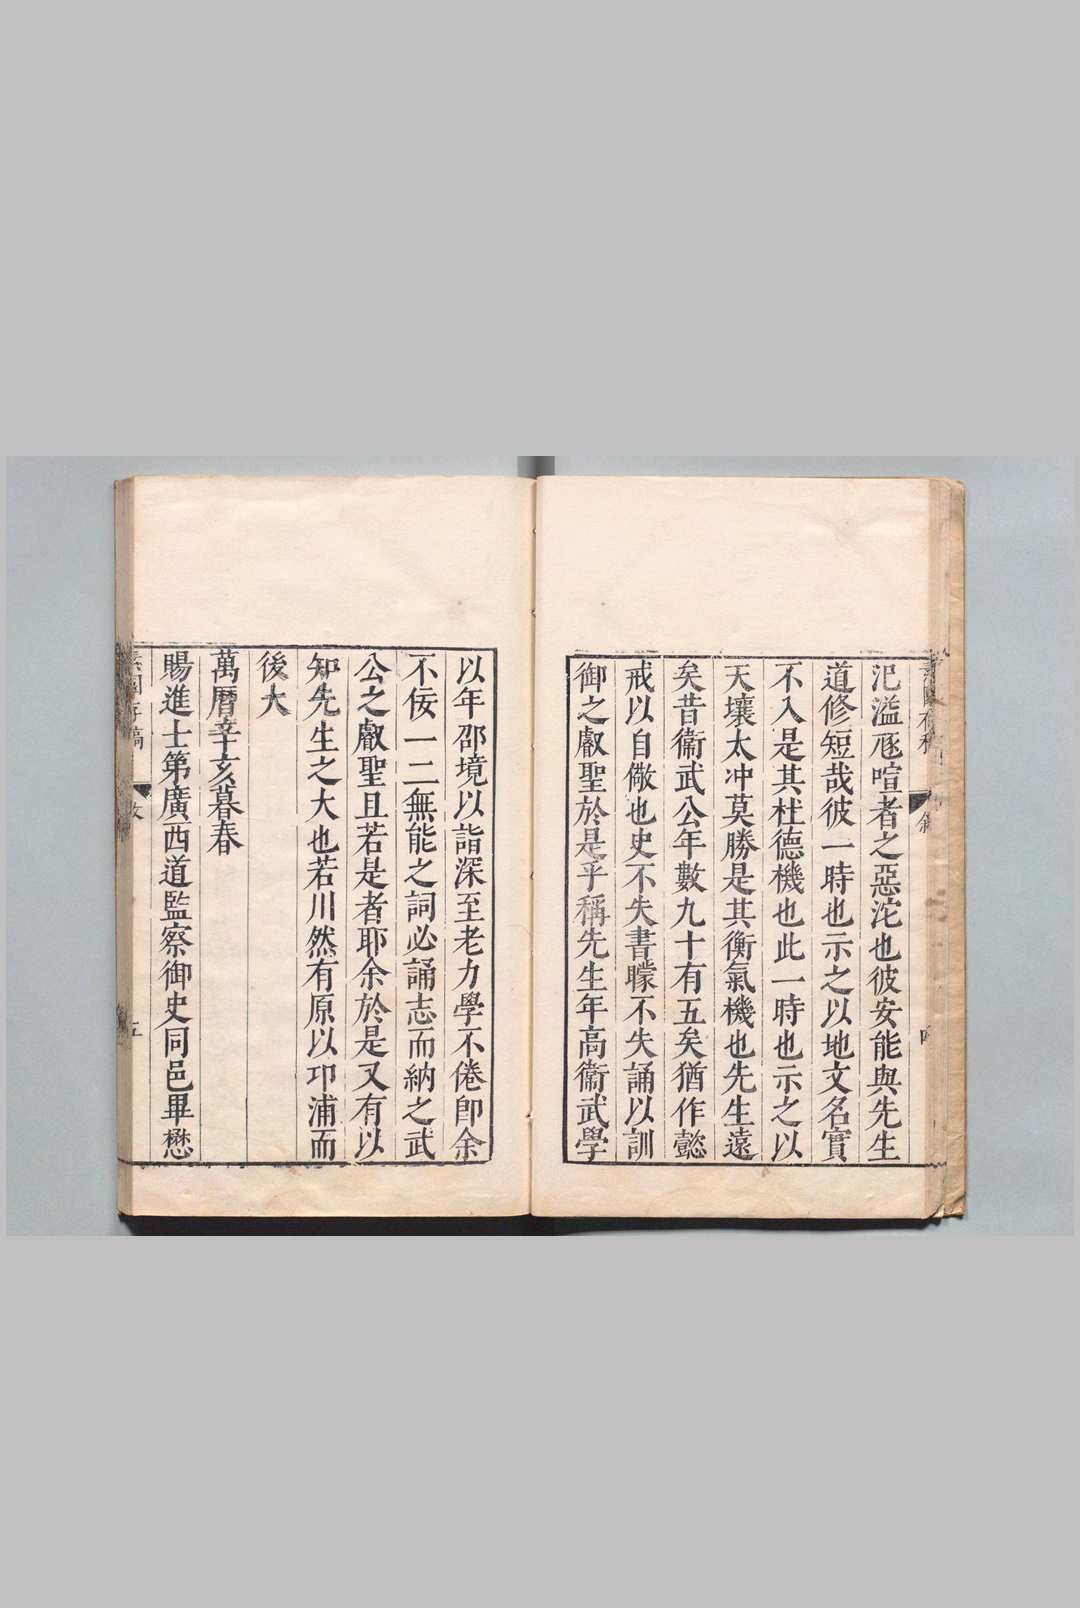 氾溢豗喧者之惡沱也彼安能與先生
道修短哉彼一時也示之以地文名實
不入是其杜德機也此一時也示之以
天壤太冲莫勝是其衡氣機也先生遠
矣昔衞武公年數九十有五矣猶作懿
戒以自儆也史不失書矇不失誦以訓
御之叡聖於是乎稱先生年高衞武學
以年邵境以詣深至老力學不倦卽余
不佞一二無能之詞必誦志而納之武
公之叡聖且若是者耶余於是又有以
知先生之大也若川然有原以卬浦而
後大
萬曆辛亥暮春
賜進士第廣西道監察御史同邑畢懋